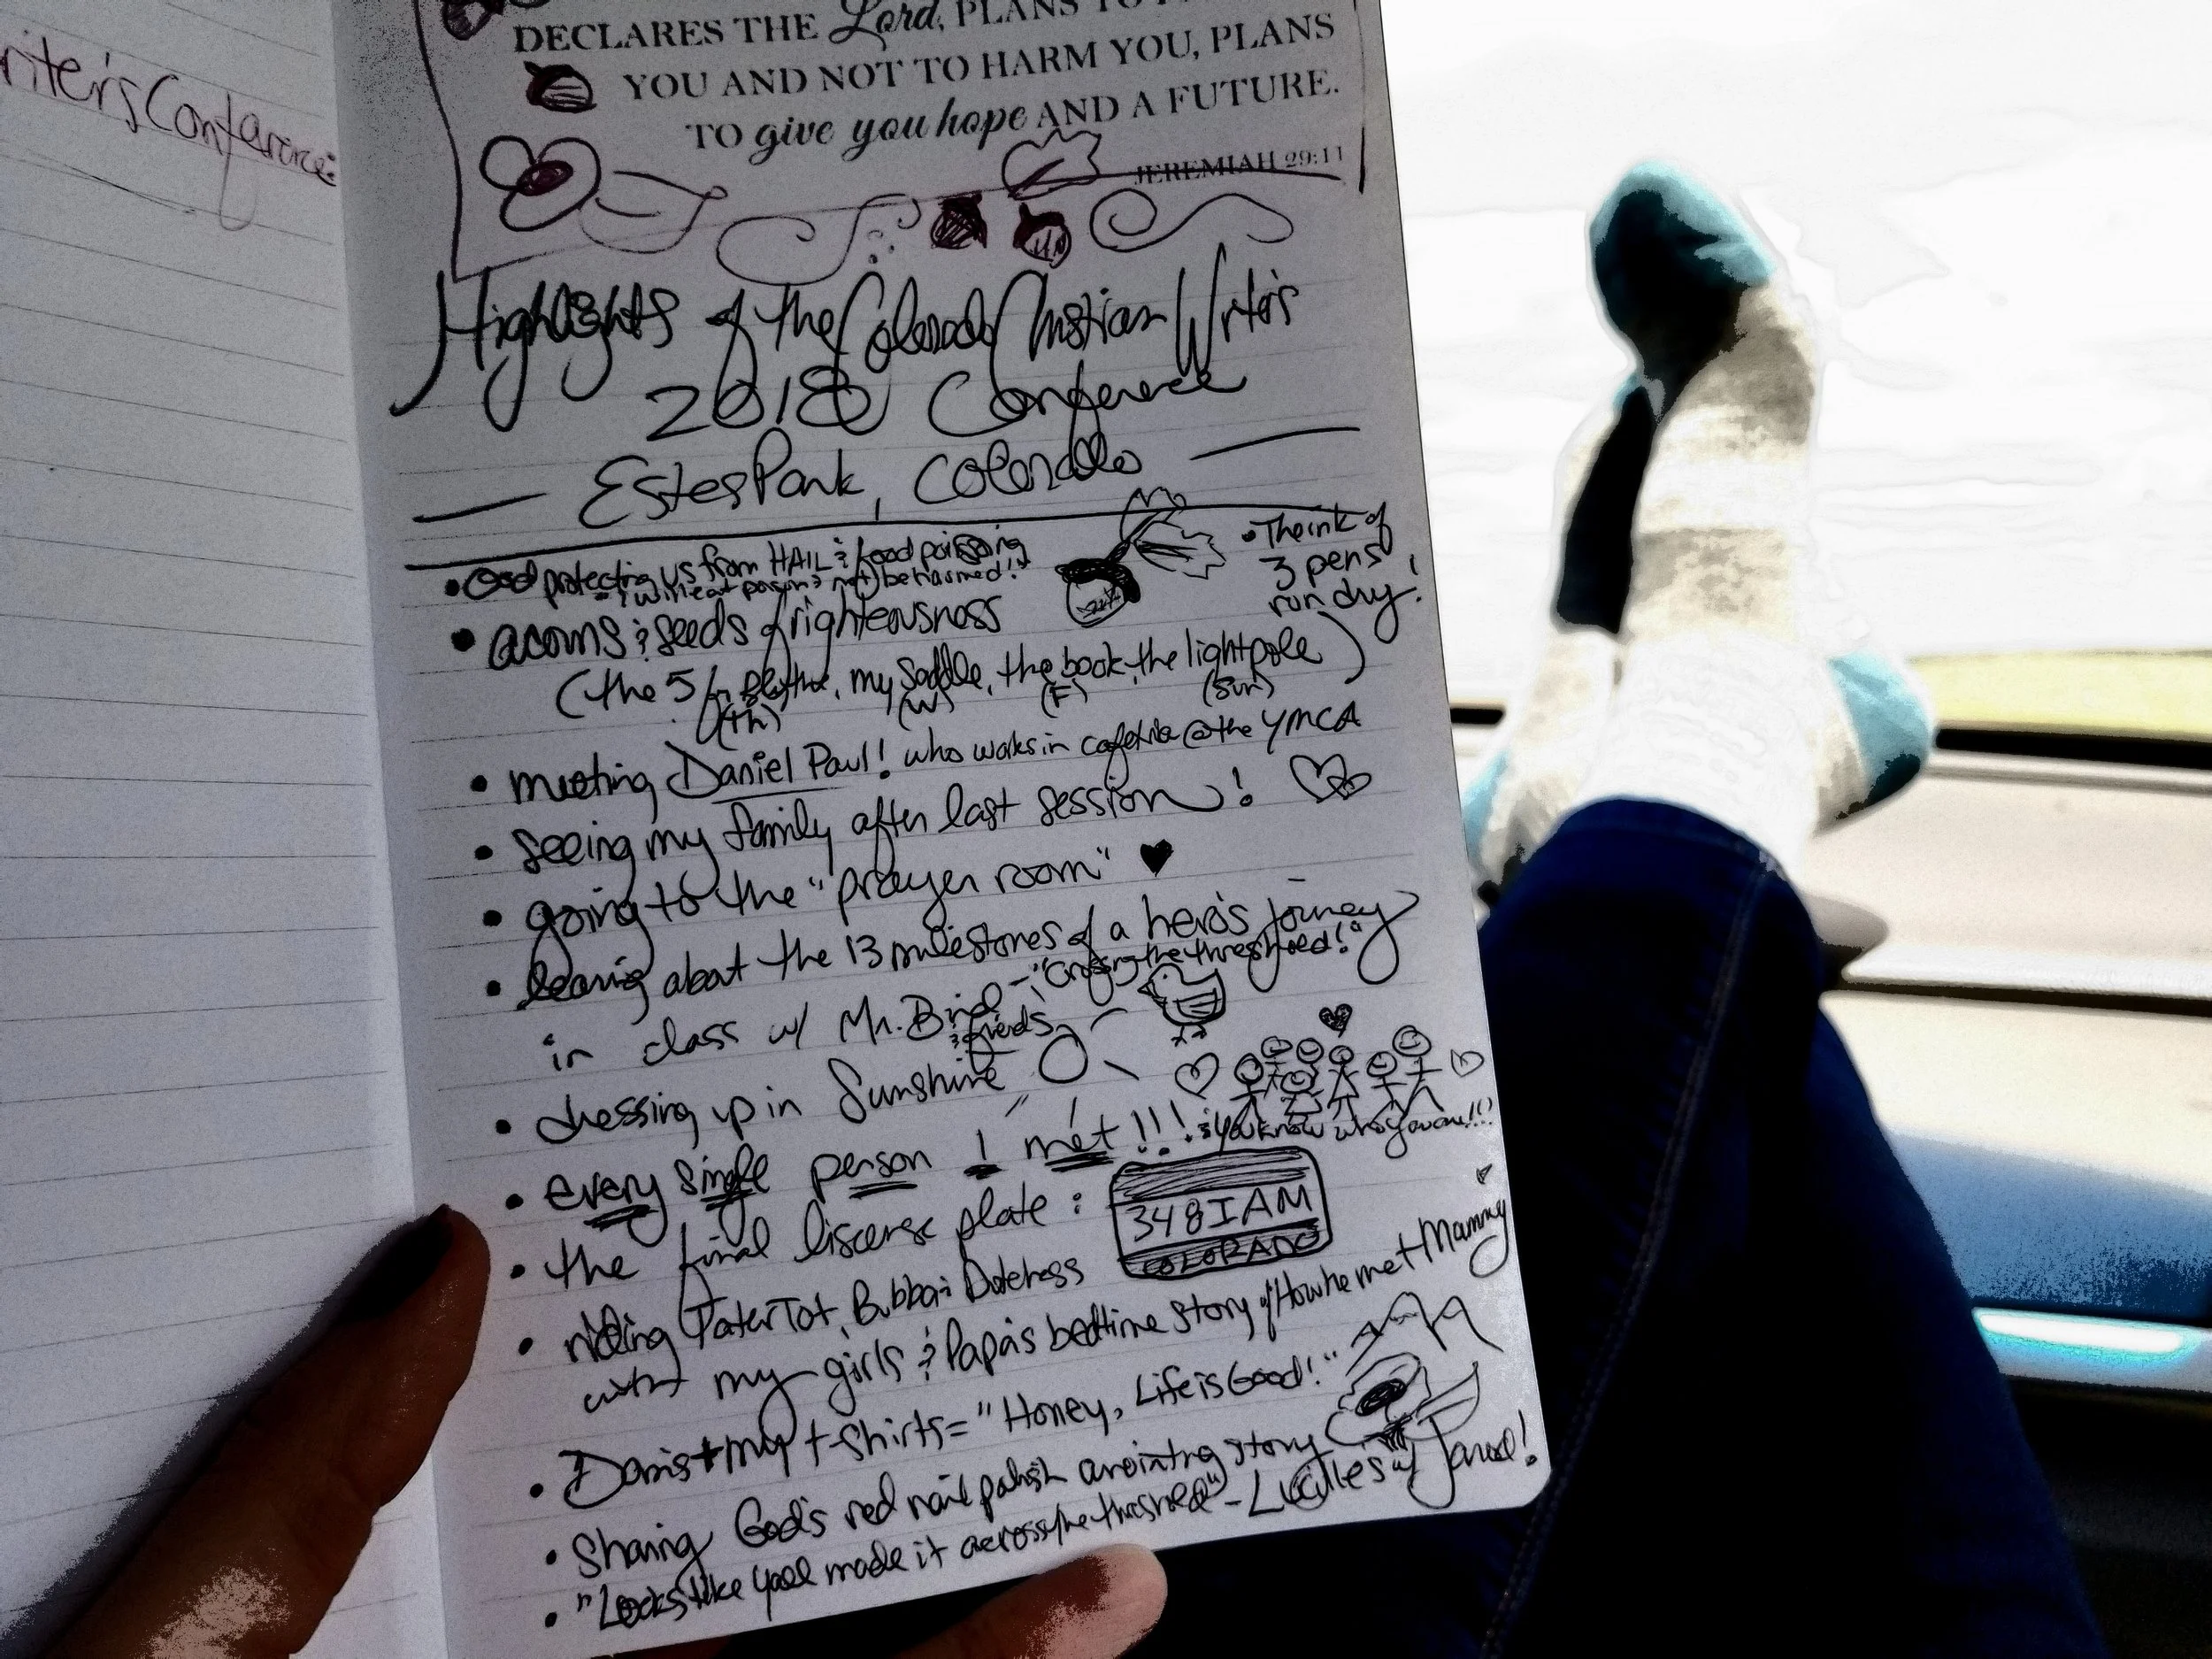 riter's Conference:
DECLARES THE Lord, PLANS TO
YOU AND NOT TO HARM YOU, PLANS
TO give you hope AND A FUTURE.
JEREMIAH 29:11
Highlights of the Colorado Christian Writer's
2018 Conference
— Estes Park, Colorado —
• God protecting us from HAIL & food poisoning
& will eat poison & not be harmed!"
• The ink of
3 pens
run dry!
• acorns & seeds of righteousness
(the 5 my saddle, the book, the lightpole)
(th) (w) (F) (Sun)
• meeting Daniel Paul! who works in cafeteria @ the YMCA
• seeing my family after last session!
• going to the "prayer room" ♥
• learing about the 13 milestones of a hero's journey
- "Crossing the threshold!"
in class w/ Mr. Bird
& friends
• dressing up in Sunshine
• every single person I met!!! & you know who you are!!!
• the final liscense plate: 348IAM
COLORADO
• riding TaterTot, Bubba & Dutchess
with my girls & Papa's bedtime story of "How he met Mammy
• Doris + my t-shirts = "Honey, Life is Good!"
• Sharing God's red nail polish anointing story
• "Looks like yall made it across the threshold" - Lucilles w/ Jarud!